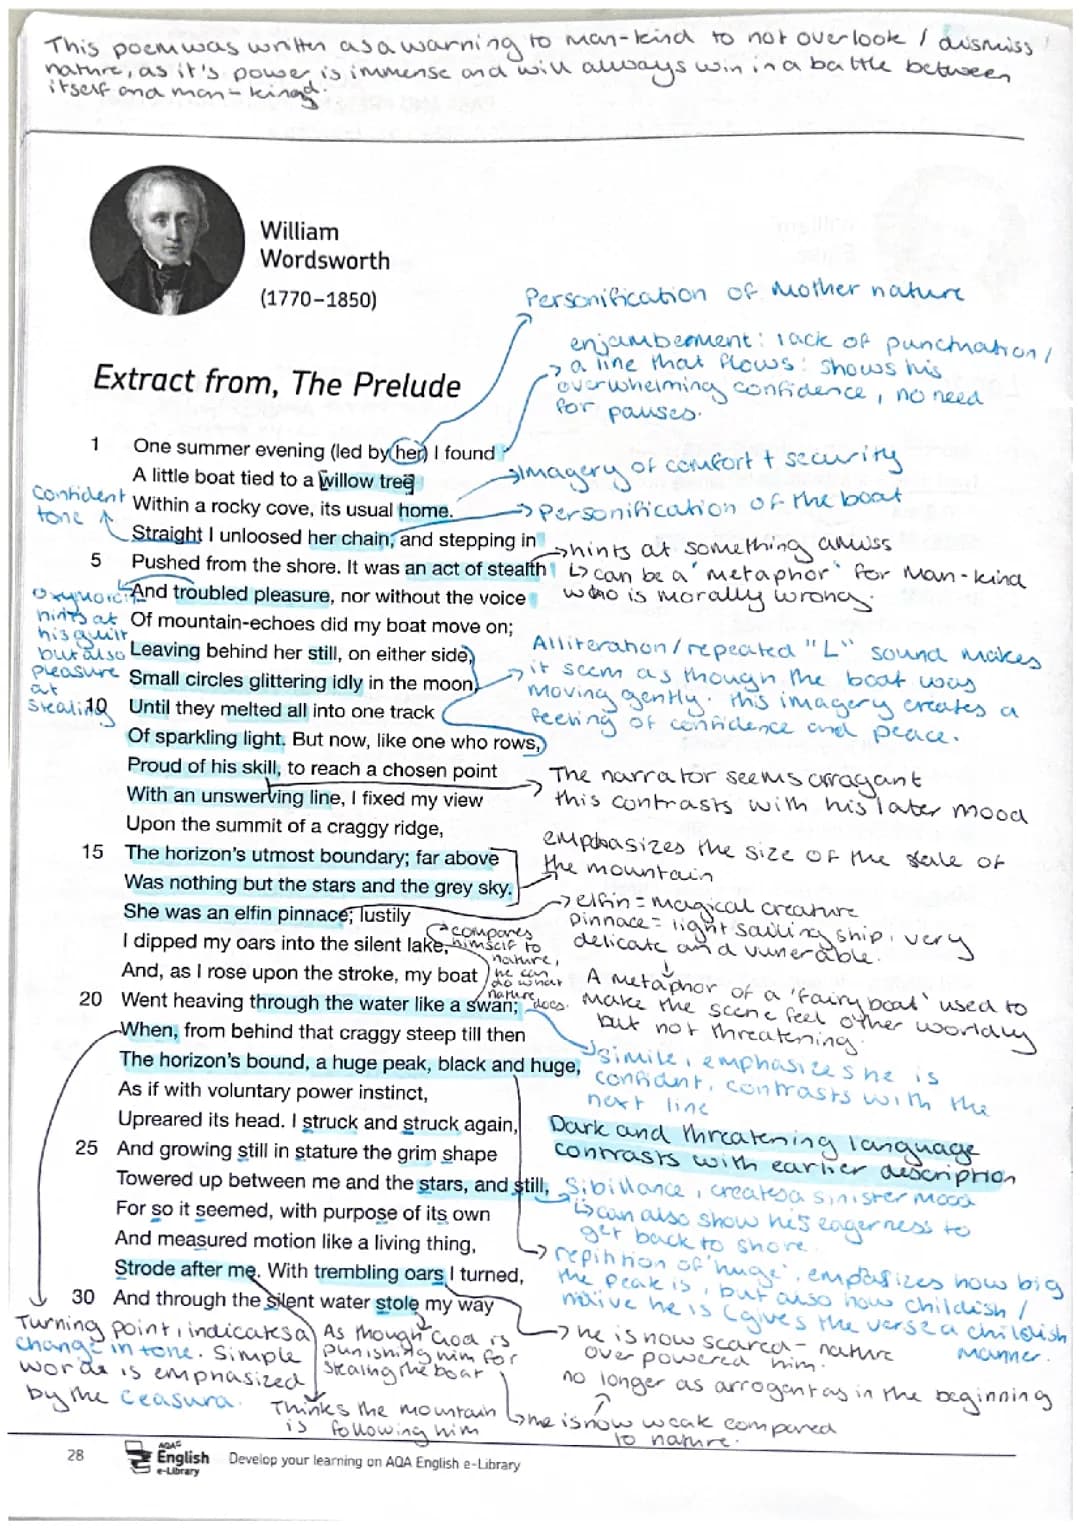 This poem was written as a warning to man-kind to not overlook / dismiss
nature, as it's power is immense and will always win in a battle between
itself and man-kind.
William
Wordsworth
(1770–1850)
Personification of Mother nature
enjambement: lack of punctuation/
a line that flows: shows his
overwhelming confidence, no need
for pauses.
Extract from, The Prelude
1 One summer evening (led by her) I found
A little boat tied to a willow tree
Within a rocky cove, its usual home.
Straight I unloosed her chain, and stepping in
5 Pushed from the shore. It was an act of stealth
And troubled pleasure, nor without the voice
Of mountain-echoes did my boat move on;
Leaving behind her still, on either side,
Small circles glittering idly in the moon,
10 Until they melted all into one track
Of sparkling light. But now, like one who rows,
Proud of his skill, to reach a chosen point
With an unswerving line, I fixed my view
Upon the summit of a craggy ridge,
15 The horizon's utmost boundary; far above
Was nothing but the stars and the grey sky.
She was an elfin pinnace; lustily
I dipped my oars into the silent lake,
And, as I rose upon the stroke, my boat
20 Went heaving through the water like a swan;
When, from behind that craggy steep till then
The horizon's bound, a huge peak, black and huge,
As if with voluntary power instinct,
Upreared its head. I struck and struck again,
25 And growing still in stature the grim shape
Towered up between me and the stars, and still,
For so it seemed, with purpose of its own
And measured motion like a living thing,
Strode after me. With trembling oars I turned,
30 And through the silent water stole my way
Confident
tone
Oxymoron
hints at
his guilt,
but also
pleasure
at
stealing
Imagery of comfort + security
Personification of the boat
hints at something amiss
can be a 'metaphor' for man-kind
who is morally wrong.
Alliteration/repeated "L" sound makes
it seem as though the boat was
moving gently. this imagery creates a
feeling of confidence and peace.
The narrator seems arragant
this contrasts with his later mood
emphasizes the size of the scale of
the mountain
elfin = magical creature
pinnace = light sailing ship, very
delicate and vunerable.
compares
himself to
nature,
he can
do what
nature
does.
A metaphor of a 'fairy boat' used to
make the scene feel other worldly
but not threatening.
simile, emphasizes he is
confident, contrasts with the
next line
Dark and threatening language
contrasts with earlier description
Sibillance, creates a sinister mood
can also show his eagerness to
get back to shore.
repitition of 'huge', emphasizes how big
the peak is, but also how childish /
naive he is (gives the verse a childish
manner.
Turning point, indicates a
change in tone. Simple
words is emphasized
by the ceasura.
As though God is
punishing him for
stealing the boat
Thinks the mountain
is following him
he is now scared - nature
over powered him.
no longer as arrogent as in the beginning
he is now weak compared
to nature.
28
AQA
English
e-Library
Develop your learning on AQA English e-Library